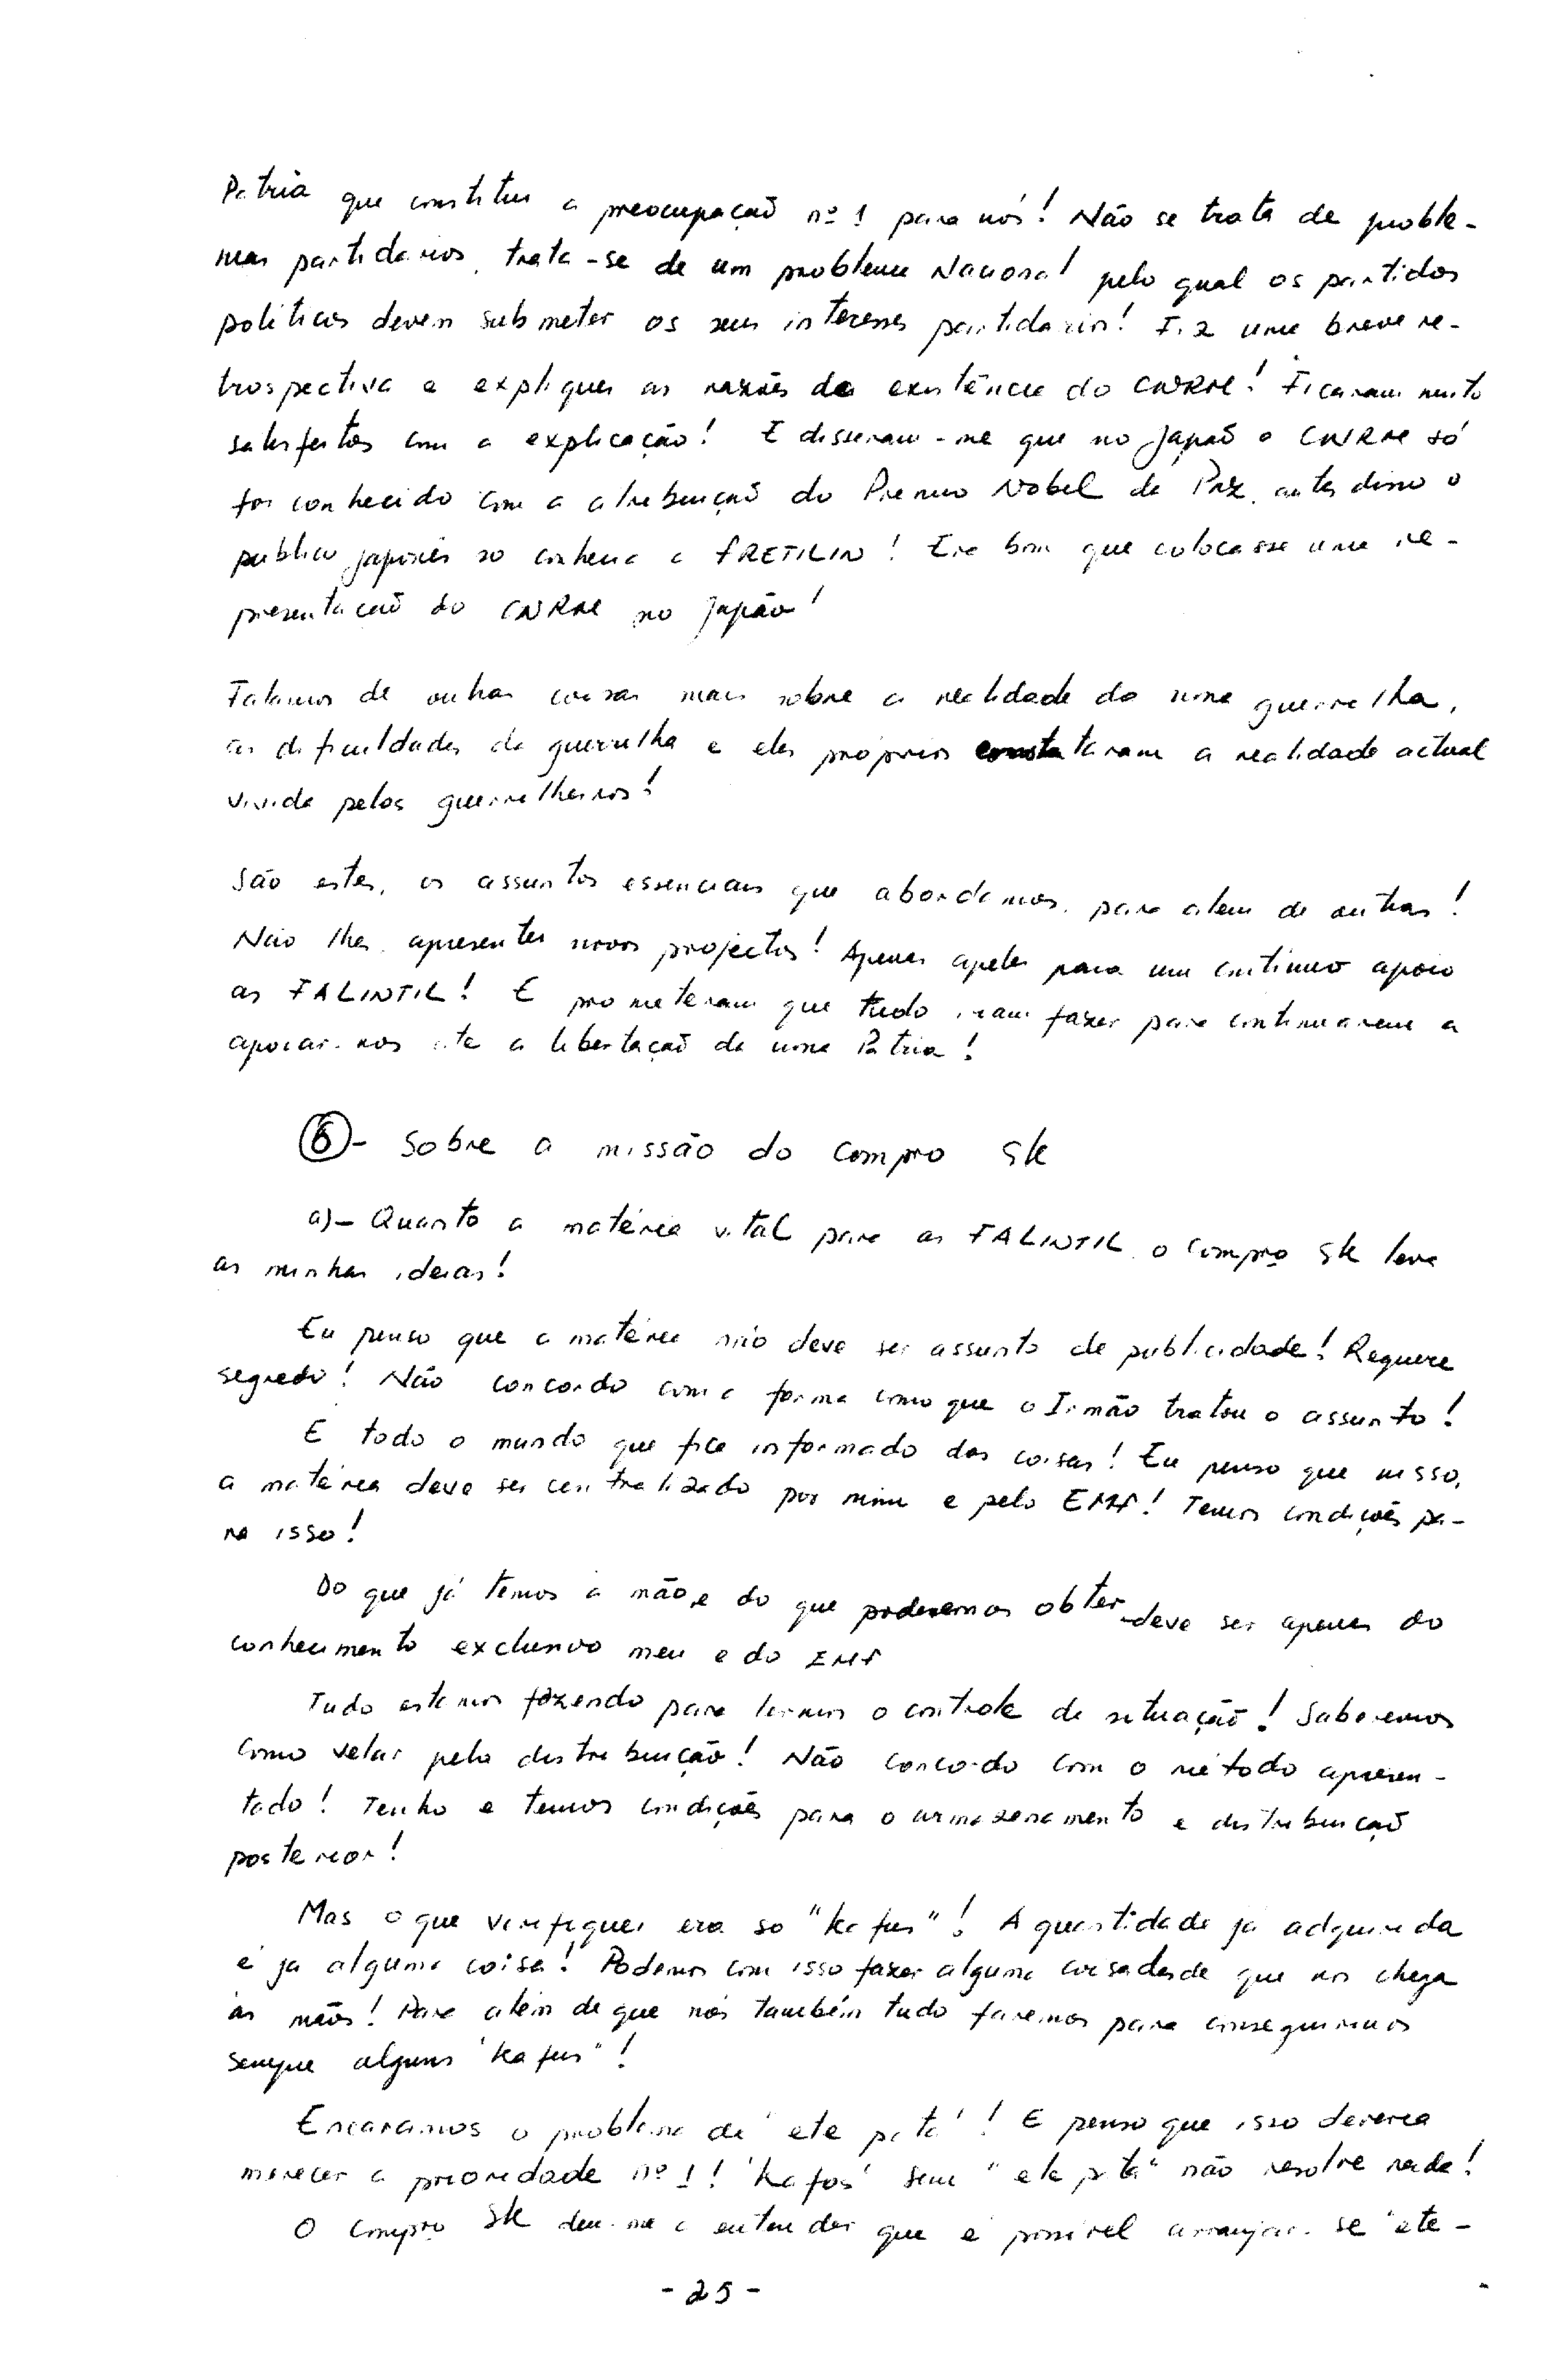 Patria que constitui a preocupação nº 1 para nós! Não se trata de proble-
mas partidarios, trata-se de um problema Nacional pelo qual os partidos
politicos devem submeter os seus interesses partidarios! Fiz uma breve re-
trospectiva e expliquei as razões da existência do CNRM! Ficaram muito
satisfeitos com a explicação! E disseram-me que no Japaõ o CNRM só
foi conhecido com a atribuiçaõ do Premio Nobel da Paz, antes disso o
publico japonês so conhecia a FRETILIN! Era bom que colocasse uma re-
presentaçaõ do CNRM no Japão!
Falamos de outras coisas mais sobre a realidade da nossa guerrilha,
as dificuldades da guerrilha e eles próprios constataram a realidade actual
vivida pelos guerrilheiros!
São estes, os assuntos essenciais que abordamos, para alem de outros!
Não lhes apresentei novos projectos! Apenas apelei para um continuo apoio
as FALINTIL! E prometeram que tudo iriam fazer para continuarem a
apoiar-nos ate a libertaçaõ da nossa Patria!
6- Sobre a missão do Compro SK
a)- Quanto a matéria vital para as FALINTIL, o Compro SK leva
as minhas ideias!
Eu penso que a matéria não deve ser assunto de publicidade! Requere
segredo! Não concordo com a forma como que o Irmão tratou o assunto!
E todo o mundo que fica informado das coisas! Eu penso que nisso,
a matéria deve ser centralizado por mim e pelo EMF! Temos condições pa-
ra isso!
Do que já temos à mão, e do que poderemos obter deve ser apenas do
conhecimento exclusivo meu e do EMF
Tudo estamos fazendo para termos o controle da situação! Saberemos
como velar pela distribuição! Não concordo com o método apresen-
tado! Tenho e temos condições para o armazenamento e distribuiçaõ
posterior!
Mas o que verifiquei era so "kafus"! A quantidade já adquirida
é ja alguma coisa! Podemos com isso fazer alguma coisa desde que nos chega
às mãos! Para além de que nós também tudo faremos para conseguirmos
sempre alguns "kafus"!
Encaramos o problema de "ete pata"! E penso que isso deveria
merecer a prioridade nº 1! "Kafos" sem "ete pata" não resolve nada!
O Compro SK deu-me a entender que é possivel arranjar-se "ete-
- 25 -